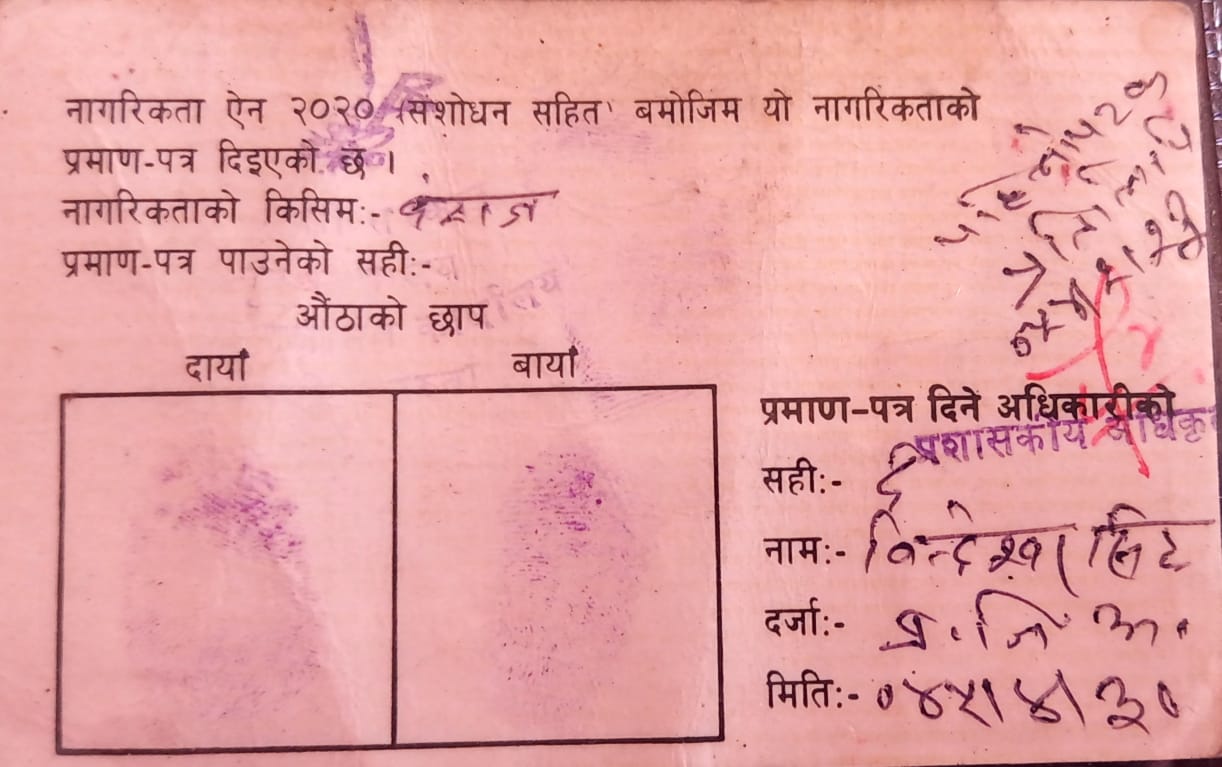 नागरिकता ऐन २०२० (संशोधन सहित) बमोजिम यो नागरिकताको
प्रमाण-पत्र दिइएको छ।
नागरिकताको किसिम:- वंशज
प्रमाण-पत्र पाउनेको सही:-
औंठाको छाप
दायाँ बायाँ
प्रमाण-पत्र दिने अधिकारीको
प्रशासकीय अधिकृत
सही:-
नाम:- विन्देश्वर सिंह
दर्जा:- प्र. जि अ.
मिति:- ०४५।४।३०